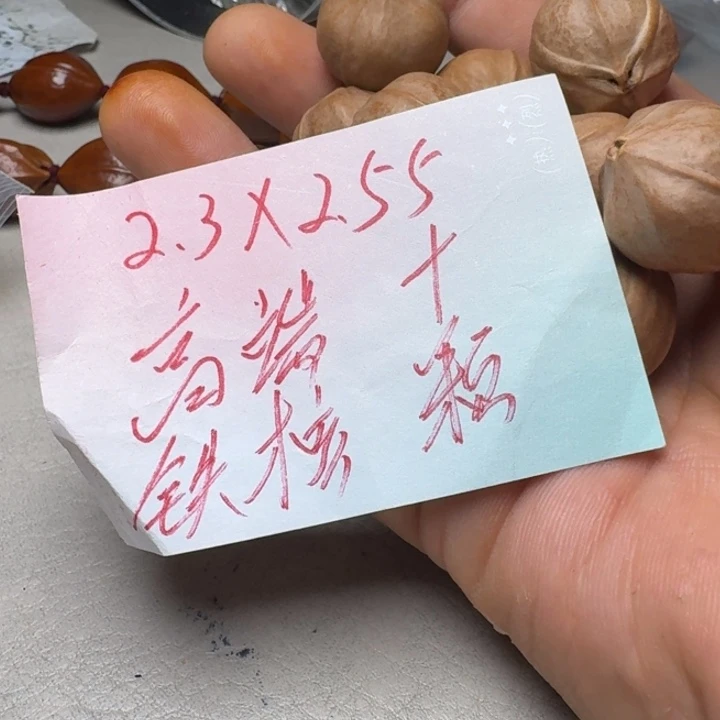 2.3X2.55
高端 十
铁核 颗